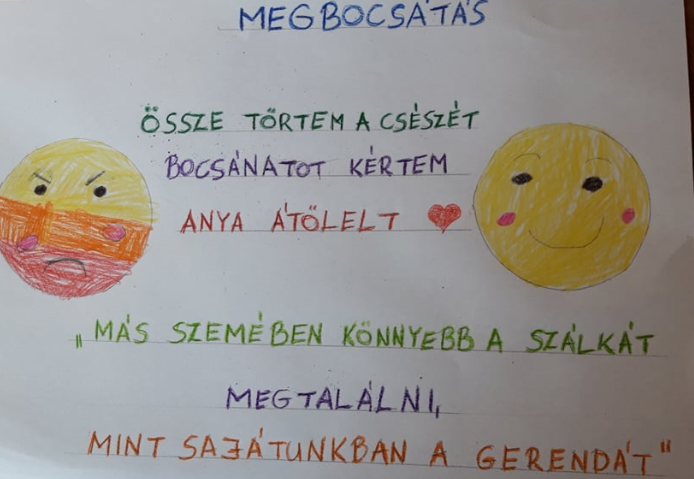 MEGBOCSÁTÁS
ÖSSZE TÖRTEM A CSÉSZÉT
BOCSÁNATOT KÉRTEM
ANYA ÁTÖLELT
„MÁS SZEMÉBEN KÖNNYEBB A SZÁLKÁT
MEGTALÁLNI,
MINT SAJÁTUNKBAN A GERENDÁT"